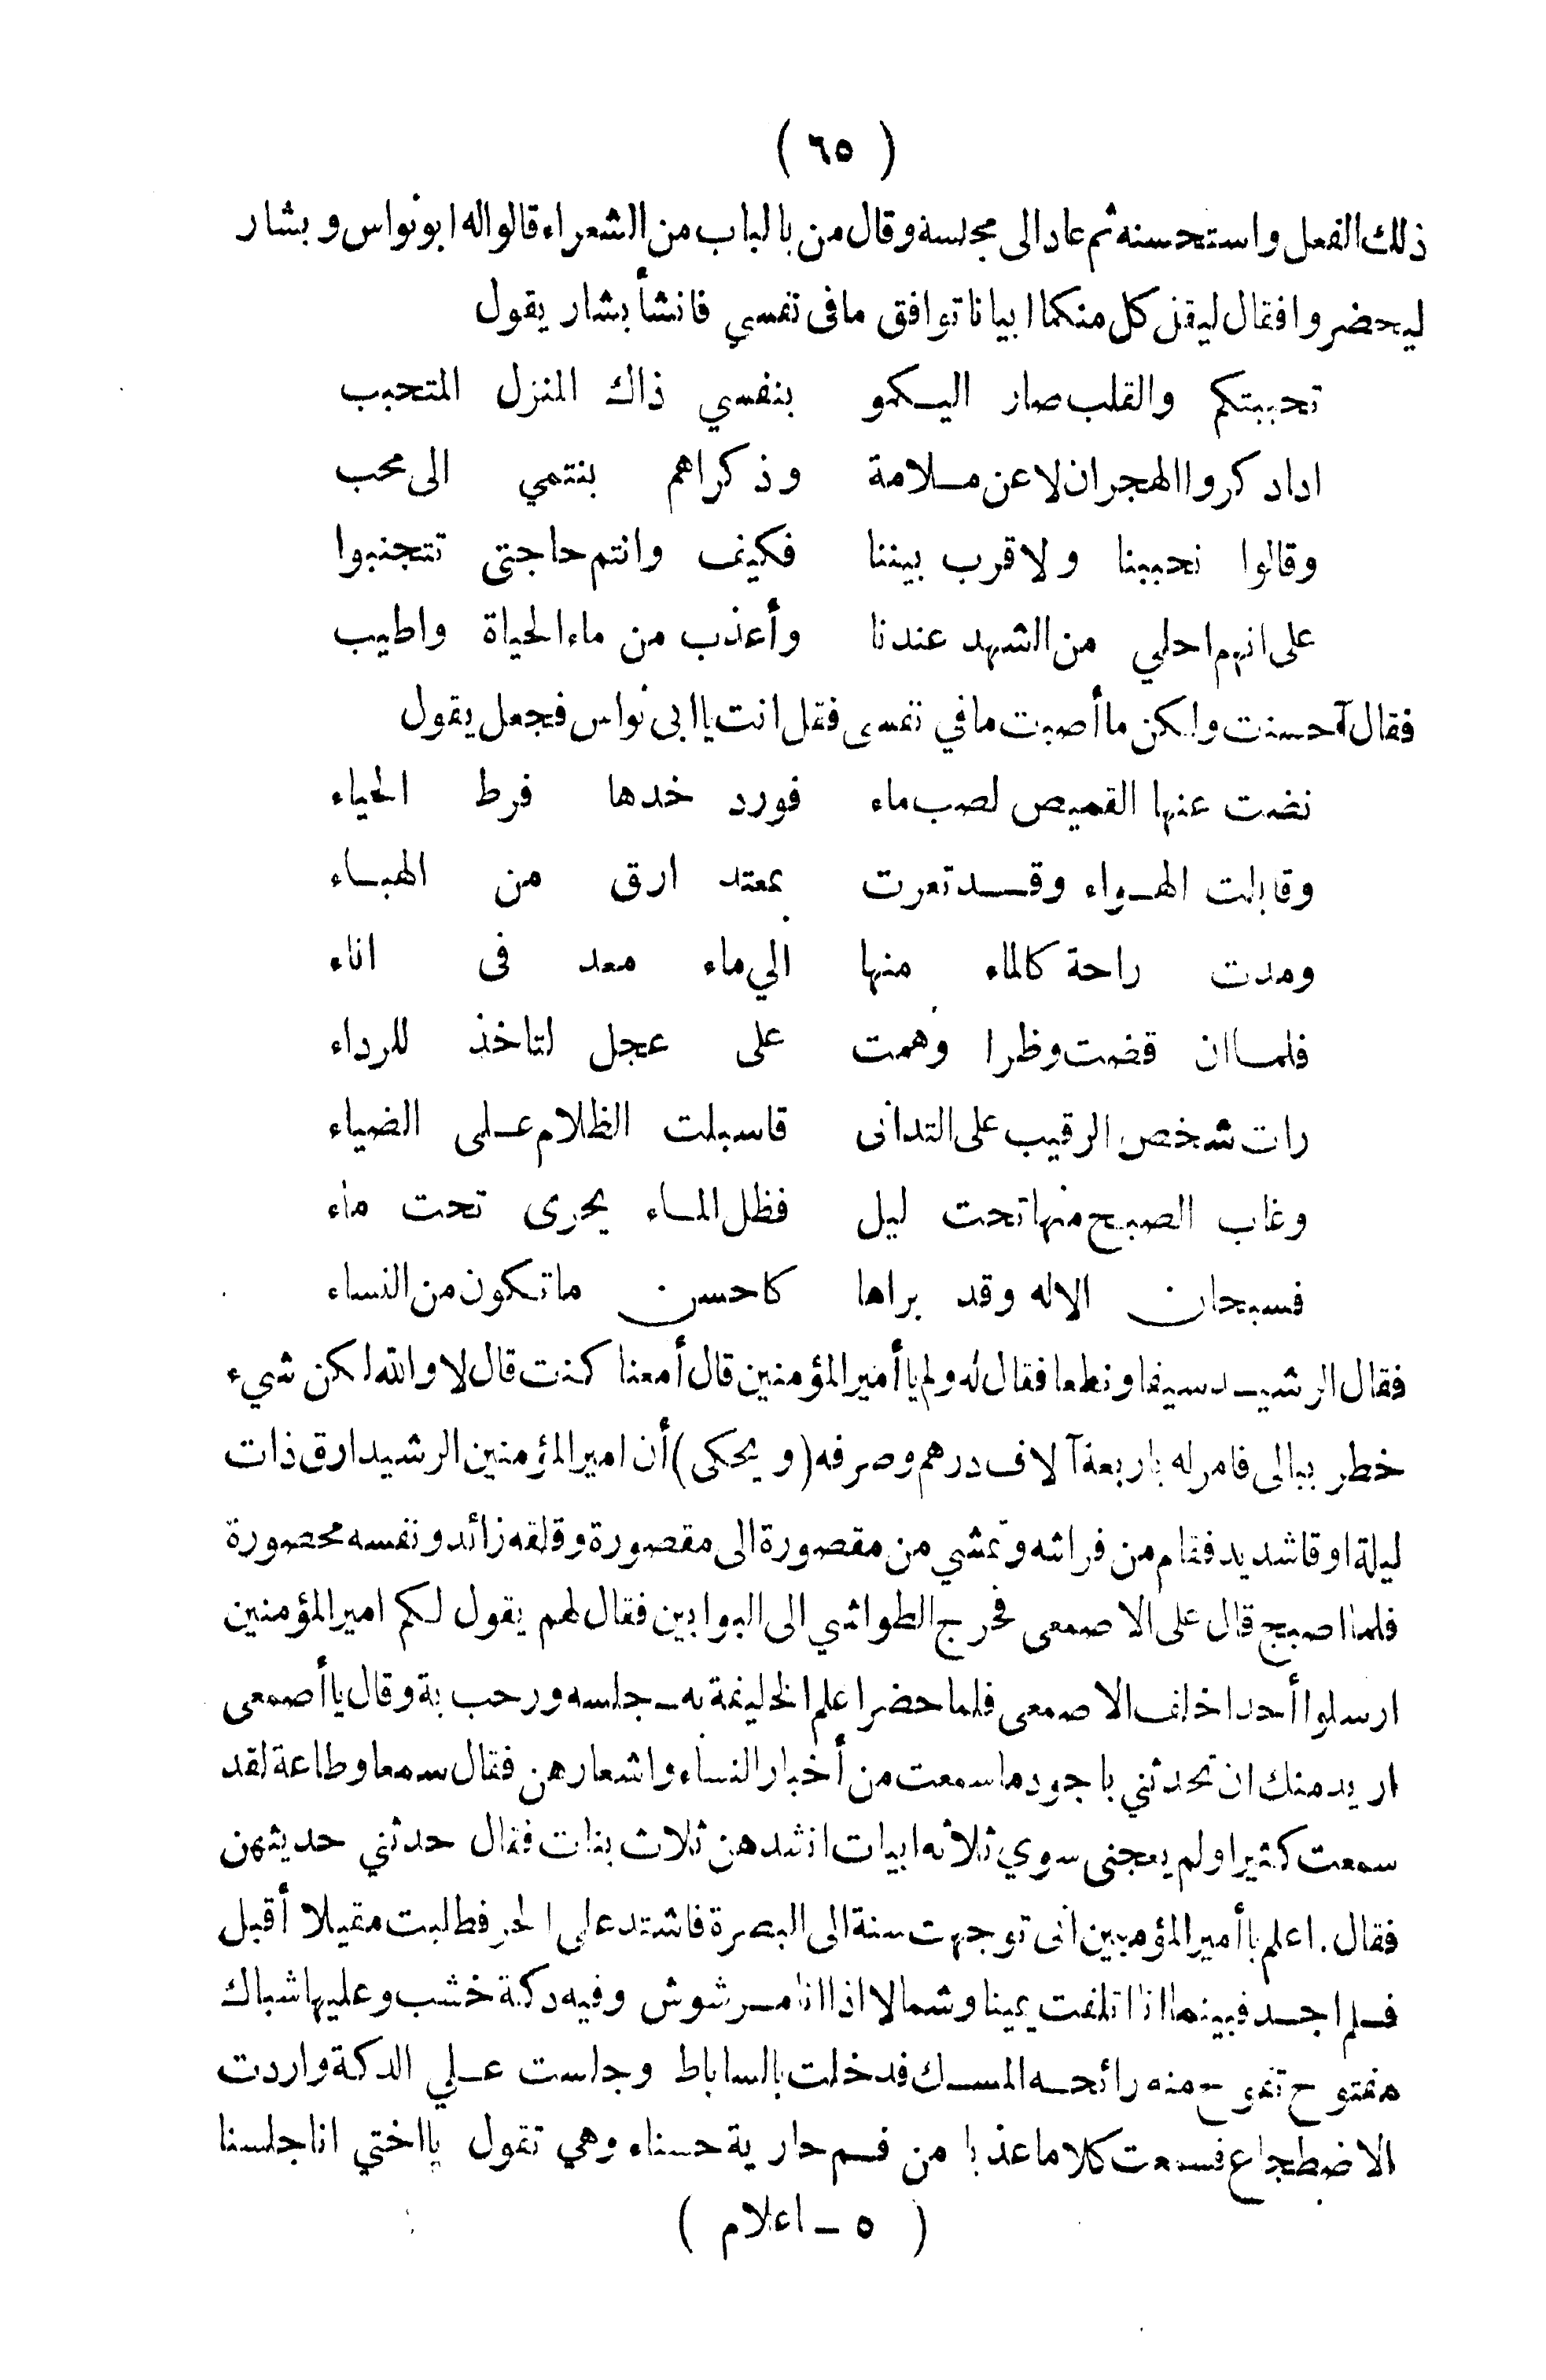 ( ٦٥ )
ذلك الفعل واستحسنه ثم عاد الى مجلسة وقال من بالباب من الشعراء قالوا له ابو نواس وبشار
ليحضروا فقال ليقل كل منكما ابياتا توافق ما فى نفسي فانشأ بشار يقول
تحببتكم والقلب صار اليكمو بنفسي ذاك المنزل المتحبب
اداد كروا الهجران لا عن ملامة وذكراهم ينتمي الى محب
وقالوا تحببنا ولا قرب بيننا فكيف وانتم حاجتى تتجنبوا
على انهم احلي من الشهد عندنا وأعذب من ماء الحياة واطيب
فقال أحسنت ولكن ما أصبت ما في نفسى فقل انت يا ابى نواس فجعل يقول
نضت عنها القميص لصب ماء فورد خدها فرط الحياء
وقابلت الهواء وقد تعرت بمعتد ارق من الهباء
ومدت راحة كالماء منها الي ماء معد فى اناء
فلما ان قضت وظرا وهمت على عجل لتاخذ للرداء
رات شخص الرقيب على التدانى فاسبلت الظلام على الضياء
وغاب الصبح منها تحت ليل فظل الماء يجرى تحت ماء
فسبحان الاله وقد براها كاحسن ما تكون من النساء
فقال الرشيد سيفا ونطعا فقال له ولم يا أمير المؤمنين قال أمعنا كنت قال لا والله لكن شيء
خطر ببالى فامر له باربعة آلاف درهم وصرفه (ويحكى) أن امير المؤمنين الرشيد ارق ذات
ليلة اوقا شديد فقام من فراشه وتمشي من مقصورة الى مقصورة وقلقه زائد ونفسه محصورة
فلما اصبح قال على الاصمعى فخرج الطواشي الى البوابين فقال لهم يقول لكم امير المؤمنين
ارسلوا أحدا خلف الاصمعى فلما حضر اعلم الخليفة به جلسه ورحب بة وقال يا أصمعى
اريد منك ان تحدثني باجود ما سمعت من أخبار النساء واشعارهن فقال سمعا وطاعة لقد
سمعت كثيرا ولم يعجنى سوي ثلاثه ابيات انشدهن ثلاث بنات فقال حدثني حديثهن
فقال. اعلم يا أمير المؤمنين انى توجهت سنة الى البصرة فاشتد على الحر فطلبت مقيلا أقبل
فلم اجد فبينما انا اتلفت يمينا وشمالا اذا انا مرشوش وفيه دكة خشب وعليها شباك
مفتوح تفوح منه رائحه المسك فدخلت بالساباط وجلست علي الدكة واردت
الاضطجاع فسمعت كلاما عذبا من فم حارية حسناء وهي تقول يا اختي انا جلسنا
( ٥ - اعلام )